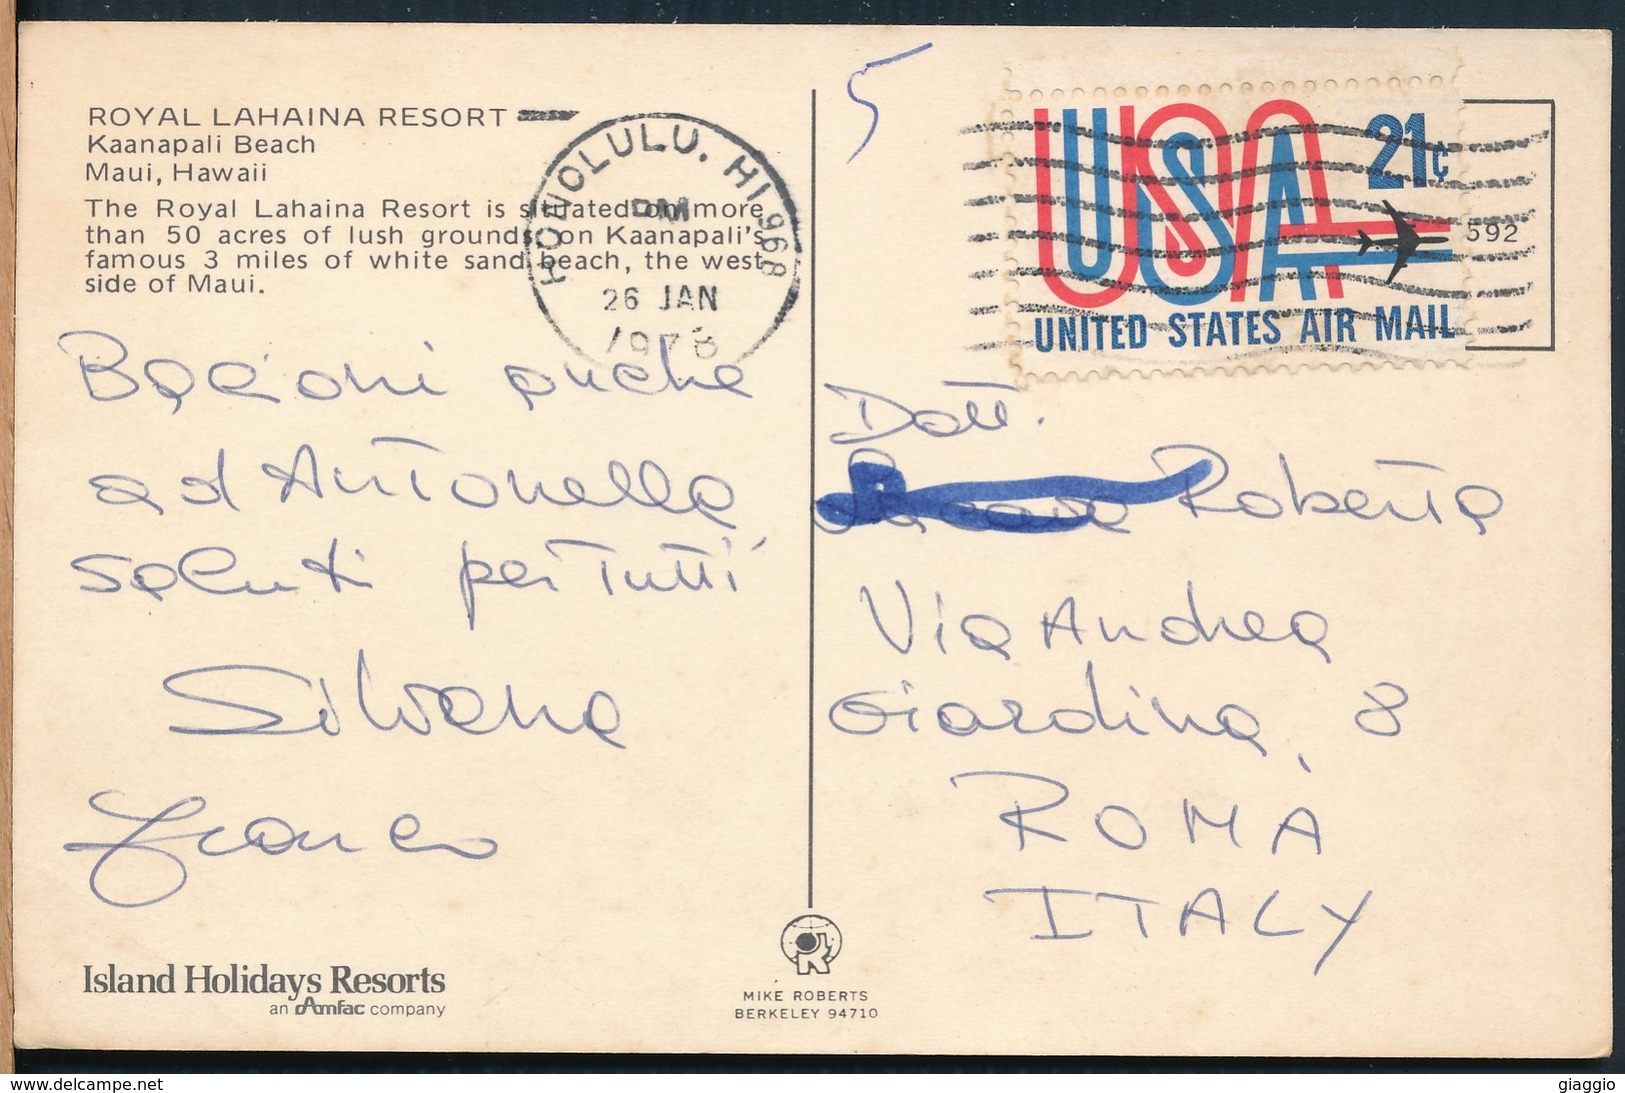 ROYAL LAHAINA RESORT
Kaanapali Beach
Maui, Hawaii
The Royal Lahaina Resort is situated on more
than 50 acres of lush grounds on Kaanapali's
famous 3 miles of white sand beach, the west
side of Maui.
HONOLULU, HI 968
PM
26 JAN
1978
5
USA 21¢
UNITED STATES AIR MAIL
592
Bacioni anche
ad Antonella,
saluti per tutti
Silvana
Franco
Dott.
Roberta
Via Andrea
Giardina, 8
ROMA
ITALY
Island Holidays Resorts
an Amfac company
MIKE ROBERTS
BERKELEY 94710
www.delcampe.net
giaggio